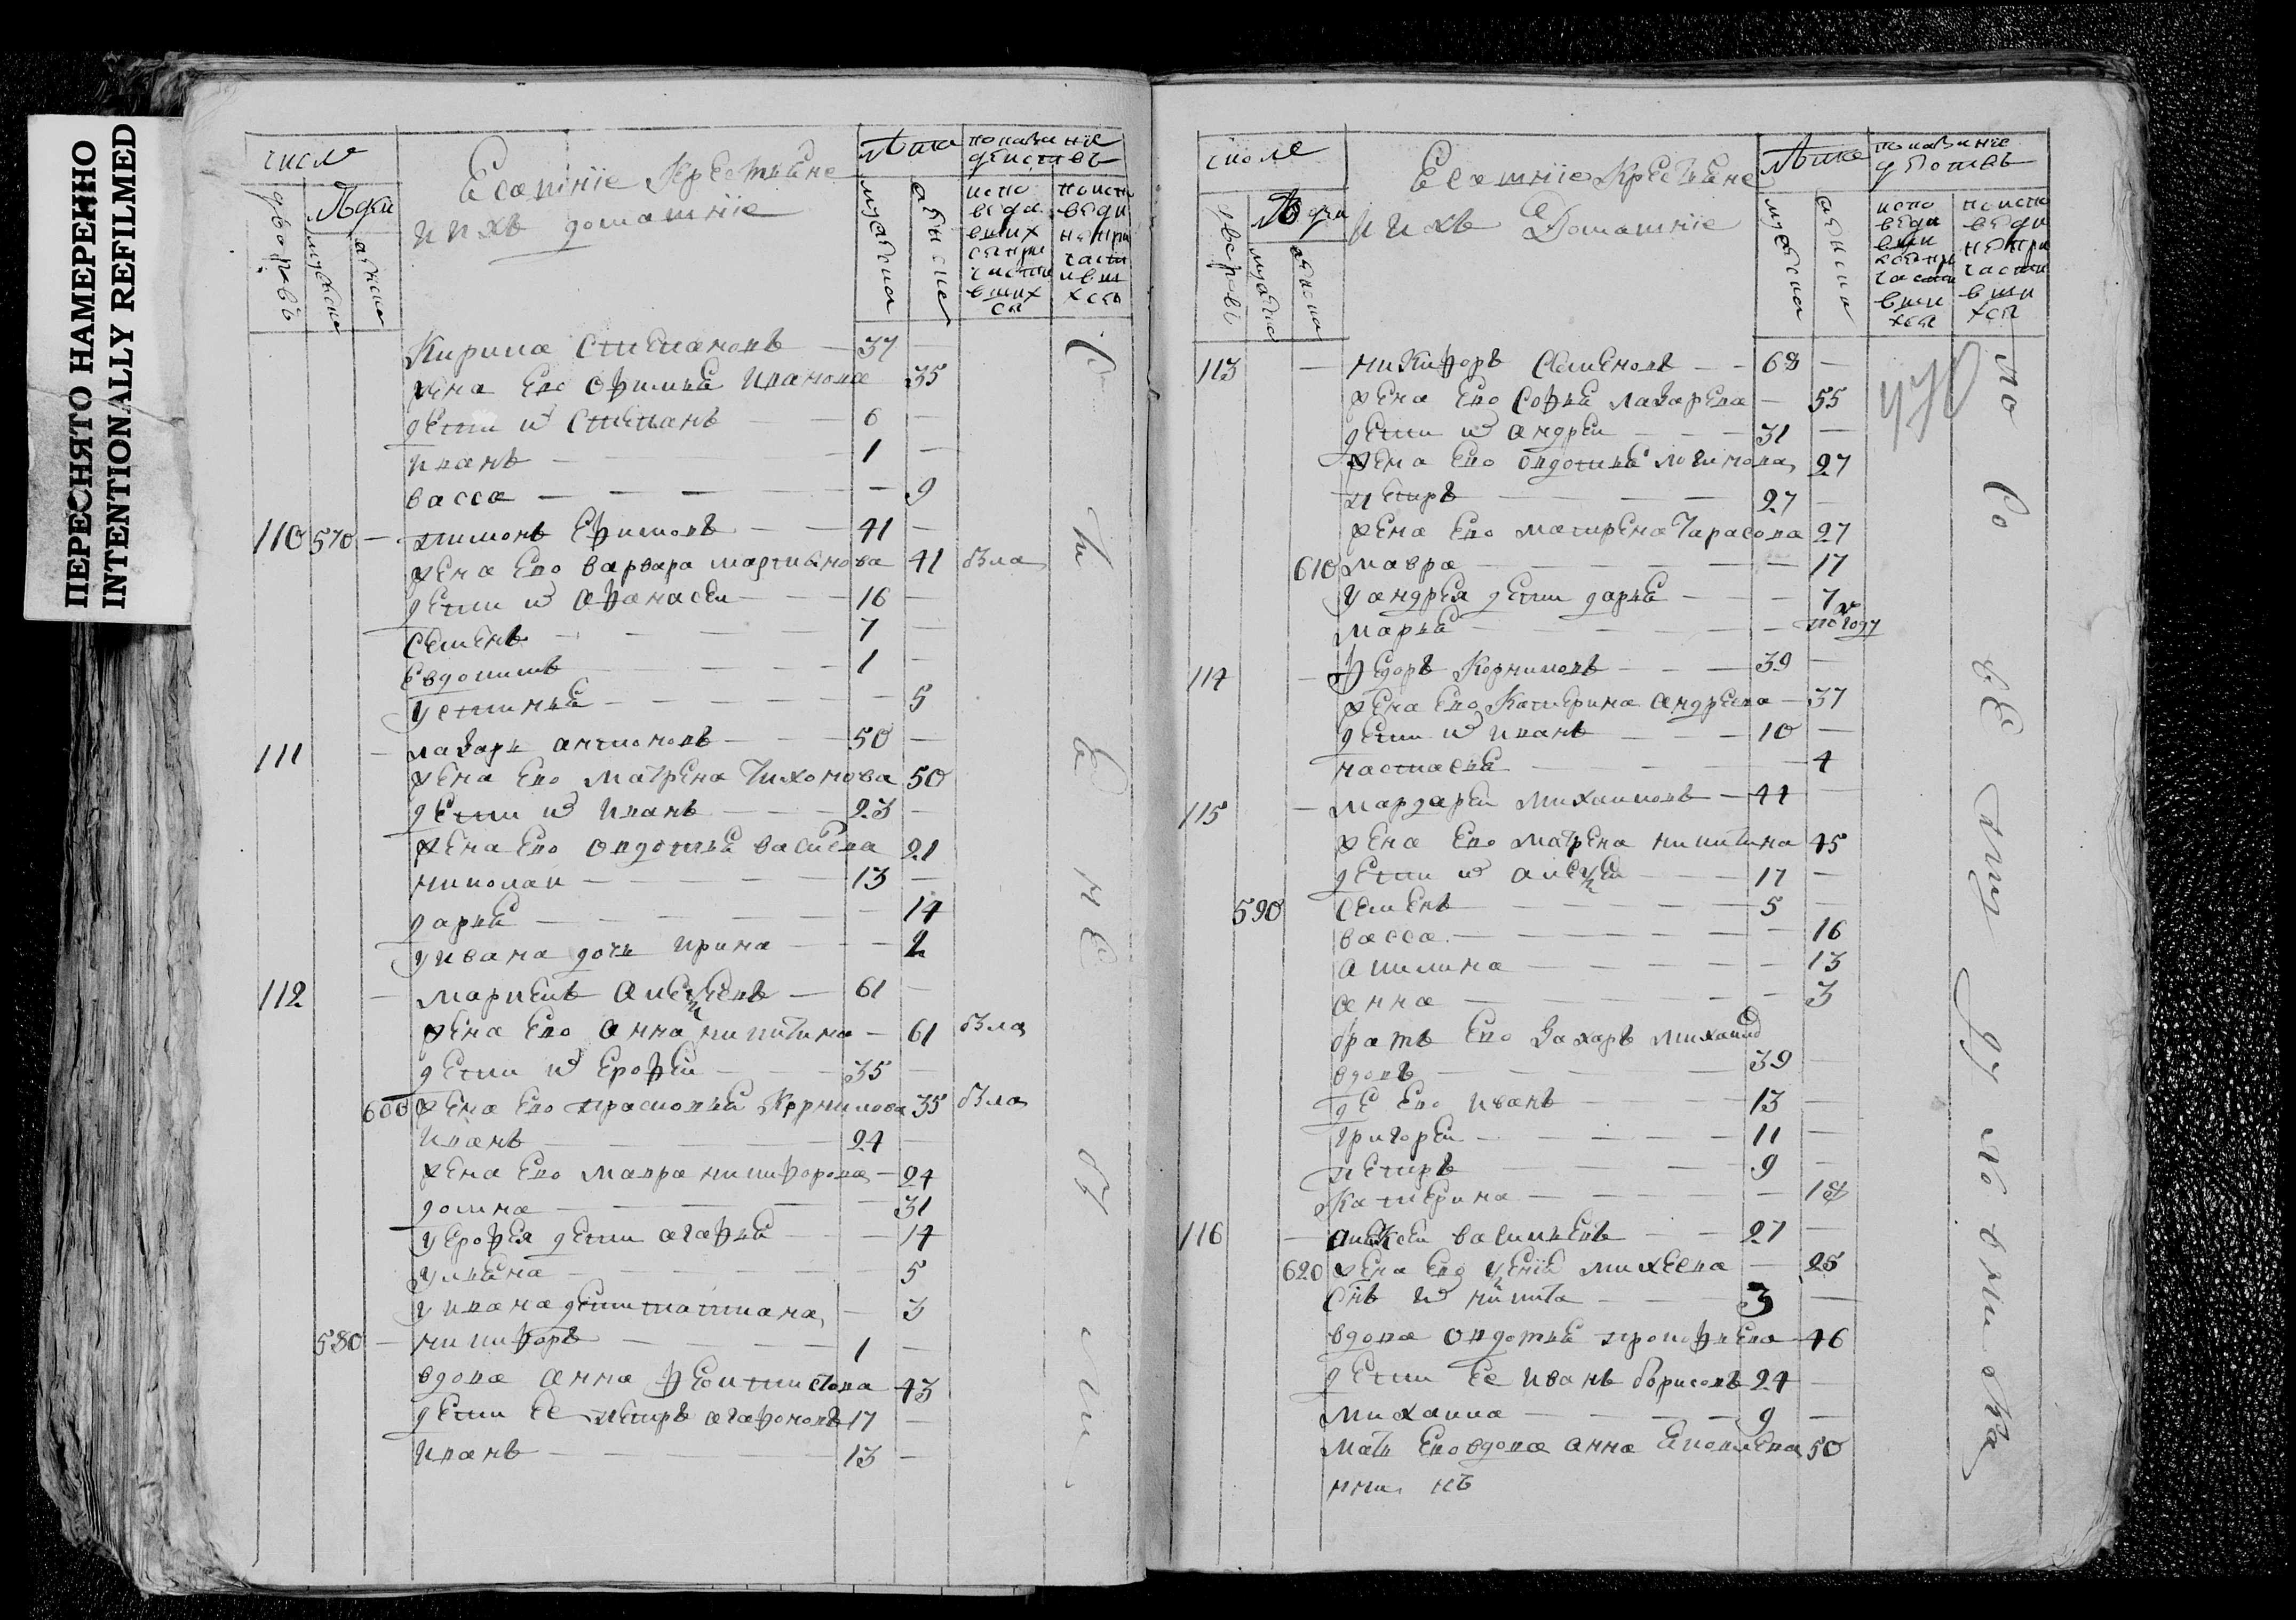 ПЕРЕСНЯТО НАМЕРЕННО
INTENTIONALLY REFILMED
число
дворовъ
Люди
мужеска
женска
Есашніе Крестьяне
и ихъ домашніе
Лѣта
показаніе
Кирила Степановъ — 37 —
жена Его Офимья Иванова 35
дети их Степанъ — 6 —
Иванъ — 1 —
васса — — 9
110 570 — пимонъ Ефимовъ — 41 —
жена Его варвара мартианова 41 бла
дети их Афанасеи — 16 —
семенъ — 7 —
Евдокимъ — 1 —
устинья — — 5
111 — лазарь антиповъ — 50 —
жена Его Матрена Тихонова 50
дети их Иванъ — 23 —
жена Его овдотья васильева 21
николаи — 13 —
дарья — — 14
у ивана дочь ирина — — 2
112 — Маркелъ Алексеевъ — 61 —
жена Его Анна никитина — 61 бла
дети их Ерофеи — 35 —
600 жена Его прасковья Корнилова 35 бла
Иванъ — 24 —
жена Его мавра никифорова — 24
домна — — 31
у Ерофея дети агафья — — 14
ульяна — — 5
у ивана дети татиана — 3
580 — никифоръ — 1 —
вдова анна феоктистова 43
дети Ее петръ агафоновъ 17 —
Иванъ — 13 —
число
Люди
Есашніе Крестьяне
и ихъ Домашніе
Лѣта
показаніе
113 — никифоръ Семеновъ — 68 —
жена Его софья лазарева — 55
дети их андреи — 31 —
жена Его овдотья логинова 27
петръ — 27 —
жена Его матрена Тарасова 27
610 мавра — — 17
у андрея дети дарья — — 7
марья — — по году
114 — федоръ Корниловъ — 39 —
жена Его Катерина андреева — 37
дети их иванъ — 10 —
настасья — 4
115 — мардареи михаиловъ — 44 —
жена Его матрена никитина 45
дети их алексеи — 17 —
590 семенъ — 5 —
васса — — 16
акилина — — 13
анна — — 3
братъ Его Захаръ михаило
вдовъ — 39 —
де Его иванъ — 13 —
григореи — 11 —
петръ — 9 —
Катерина — — 18
116 — алексеи васильевъ — 27 —
620 жена Его михеева — 25
снъ их никита — 3 —
вдова овдотья прокофьева 46
дети Ее иванъ борисовъ 24 —
михаила — 9 —
мать Его вдова анна 50